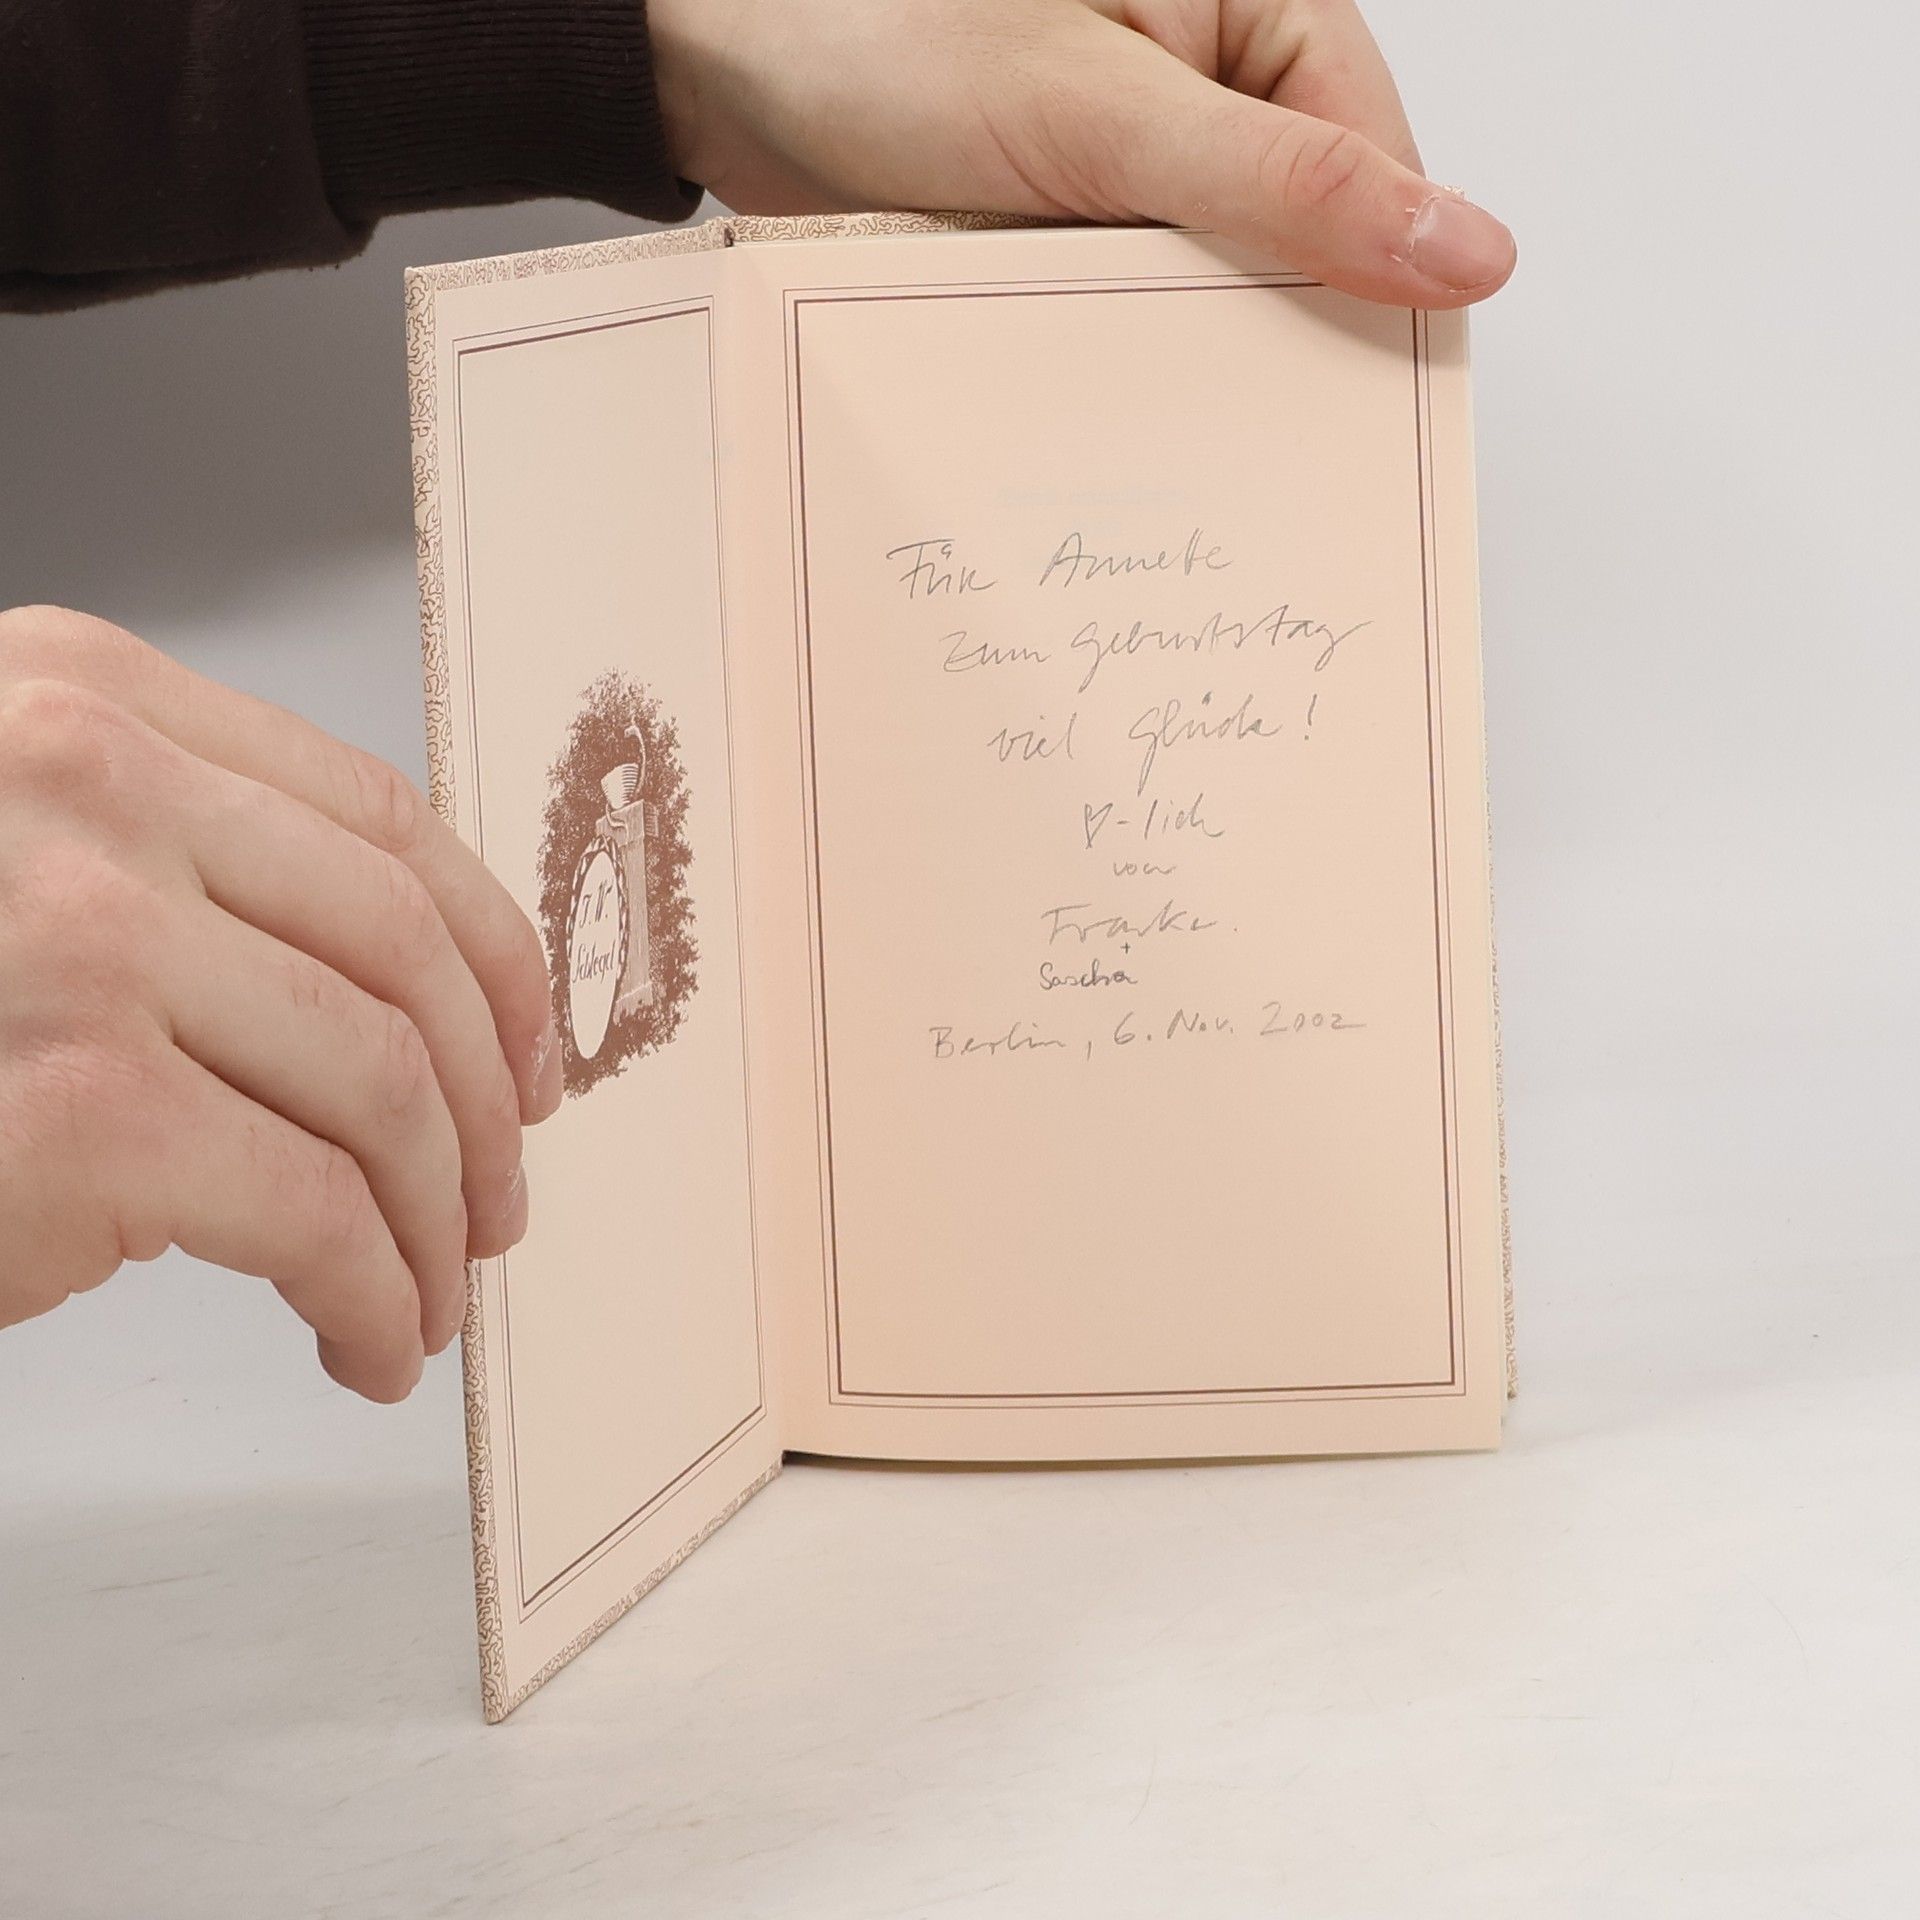 J. W.
Schlegel
Für Annette
zum Geburtstag
viel Glück!
♡-lich
von
Franke.
+
Sascha
Berlin, 6. Nov. 2002